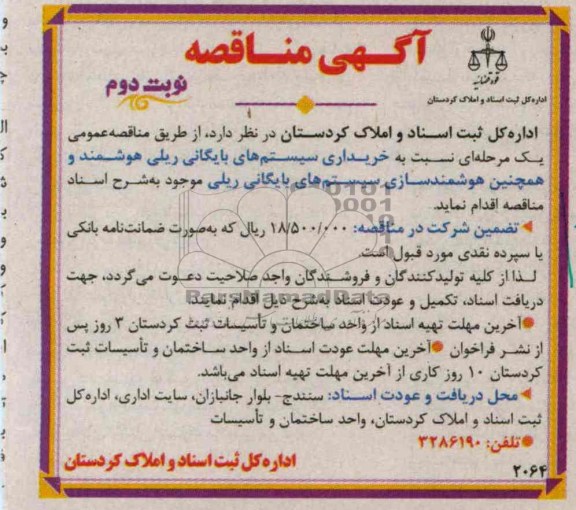 آگهی مناقصه
نوبت دوم
قوه قضائیه
اداره کل ثبت اسناد و املاک کردستان
اداره‌کل ثبت اسناد و املاک کردستان در نظر دارد، از طریق مناقصه‌عمومی
یک مرحله‌ای نسبت به خریداری سیستم‌های بایگانی ریلی هوشمند و
همچنین هوشمندسازی سیستم‌های بایگانی ریلی موجود به‌شرح اسناد
مناقصه اقدام نماید.
تضمین شرکت در مناقصه: ۱۸/۵۰۰/۰۰۰ ریال که به‌صورت ضمانت‌نامه بانکی
یا سپرده نقدی مورد قبول است.
لذا از کلیه تولیدکنندگان و فروشندگان واجد صلاحیت دعوت می‌گردد، جهت
دریافت اسناد، تکمیل و عودت اسناد به‌شرح ذیل اقدام نمایند.
آخرین مهلت تهیه اسناد از واحد ساختمان و تأسیسات ثبت کردستان ۳ روز پس
از نشر فراخوان ●آخرین مهلت عودت اسناد از واحد ساختمان و تأسیسات ثبت
کردستان ۱۰ روز کاری از آخرین مهلت تهیه اسناد می‌باشد.
محل دریافت و عودت اسناد: سنندج- بلوار جانبازان، سایت اداری، اداره‌کل
ثبت اسناد و املاک کردستان، واحد ساختمان و تأسیسات
●تلفن: ۳۲۸۶۱۹۰
اداره‌کل ثبت اسناد و املاک کردستان
۲۰۶۴